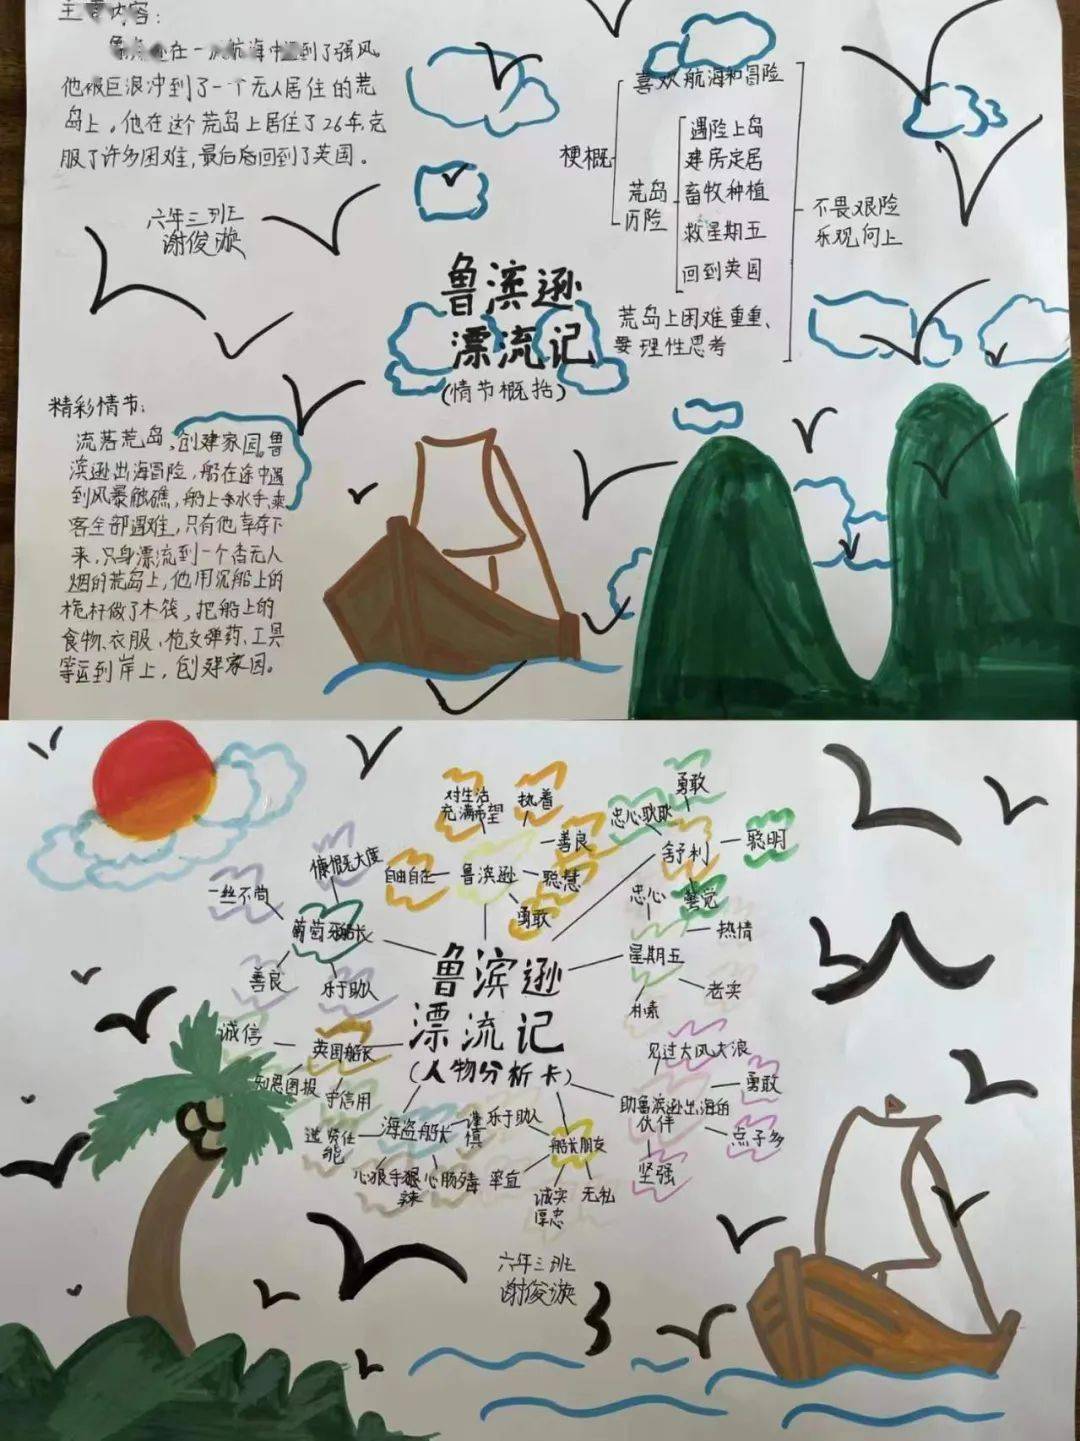 主要内容:
鲁滨逊在一次航海中遇到了强风
他被巨浪冲到了一个无人居住的荒
岛上。他在这个荒岛上居住了26年,克
服了许多困难,最后后回到了英国。
六年三班
谢俊漩
鲁滨逊
漂流记
(情节概括)
梗概
喜欢航海和冒险
荒岛
历险
遇险上岛
建房定居
畜牧种植
救星期五
回到英国
荒岛上困难重重、
要理性思考
不畏艰险
乐观向上
精彩情节:
流落荒岛,创建家园。鲁
滨逊出海冒险,船在途中遇
到风暴触礁,船上水手、乘
客全部遇难,只有他幸存下
来,只身漂流到一个杳无人
烟的荒岛上,他用沉船上的
桅杆做了木筏,把船上的
食物、衣服、枪支弹药、工具
等运到岸上,创建家园。
鲁滨逊
漂流记
(人物分析卡)
鲁滨逊
对生活
充满希望
执着
善良
聪慧
勇敢
自由自在
舒利
忠心耿耿
勇敢
聪明
警觉
星期五
忠心
热情
老实
朴素
助鲁滨逊出海的
伙伴
见过大风大浪
勇敢
点子多
坚强
船长朋友
乐于助人
率直
诚实
厚忠
无私
海盗船长
谨
慎
心狠手狠
辣
心肠歹毒
英国船长
诚信
知恩图报
守信用
葡萄牙船长
慷慨大度
一丝不苟
善良
乐于助人
六年三班
谢俊漩